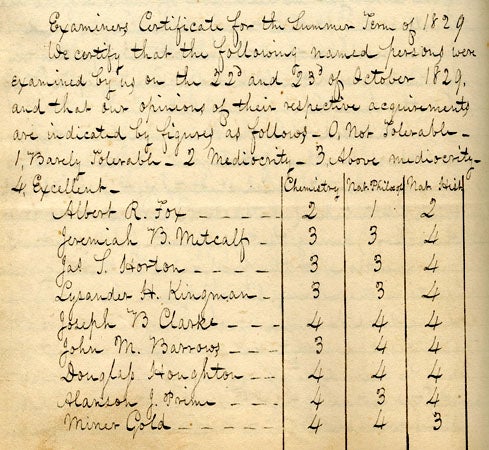 Examiners Certificate for the Summer Term of 1829
We certify that the following named persons were
examined by us on the 22d and 23d of October 1829,
and that our opinions of their respective acquirements
are indicated by figures as follows - 0, Not Tolerable -
1, Barely Tolerable - 2 Mediocrity - 3, Above mediocrity -
4, Excellent - Chemistry Nat. Philoso Nat. Hist
Albert R. Fox - - - - - 2 1 2
Jeremiah B. Metcalf - 3 3 4
Jas S. Horton - - - - 3 3 4
Lysander H. Kingman - 3 3 4
Joseph B Clarke - - - 4 4 4
John M. Barrows - - - 3 4 4
Douglass Houghton - - - 4 4 4
Alanson J. Prime - - - 4 3 4
Miner Gold - - - - - - 4 4 3